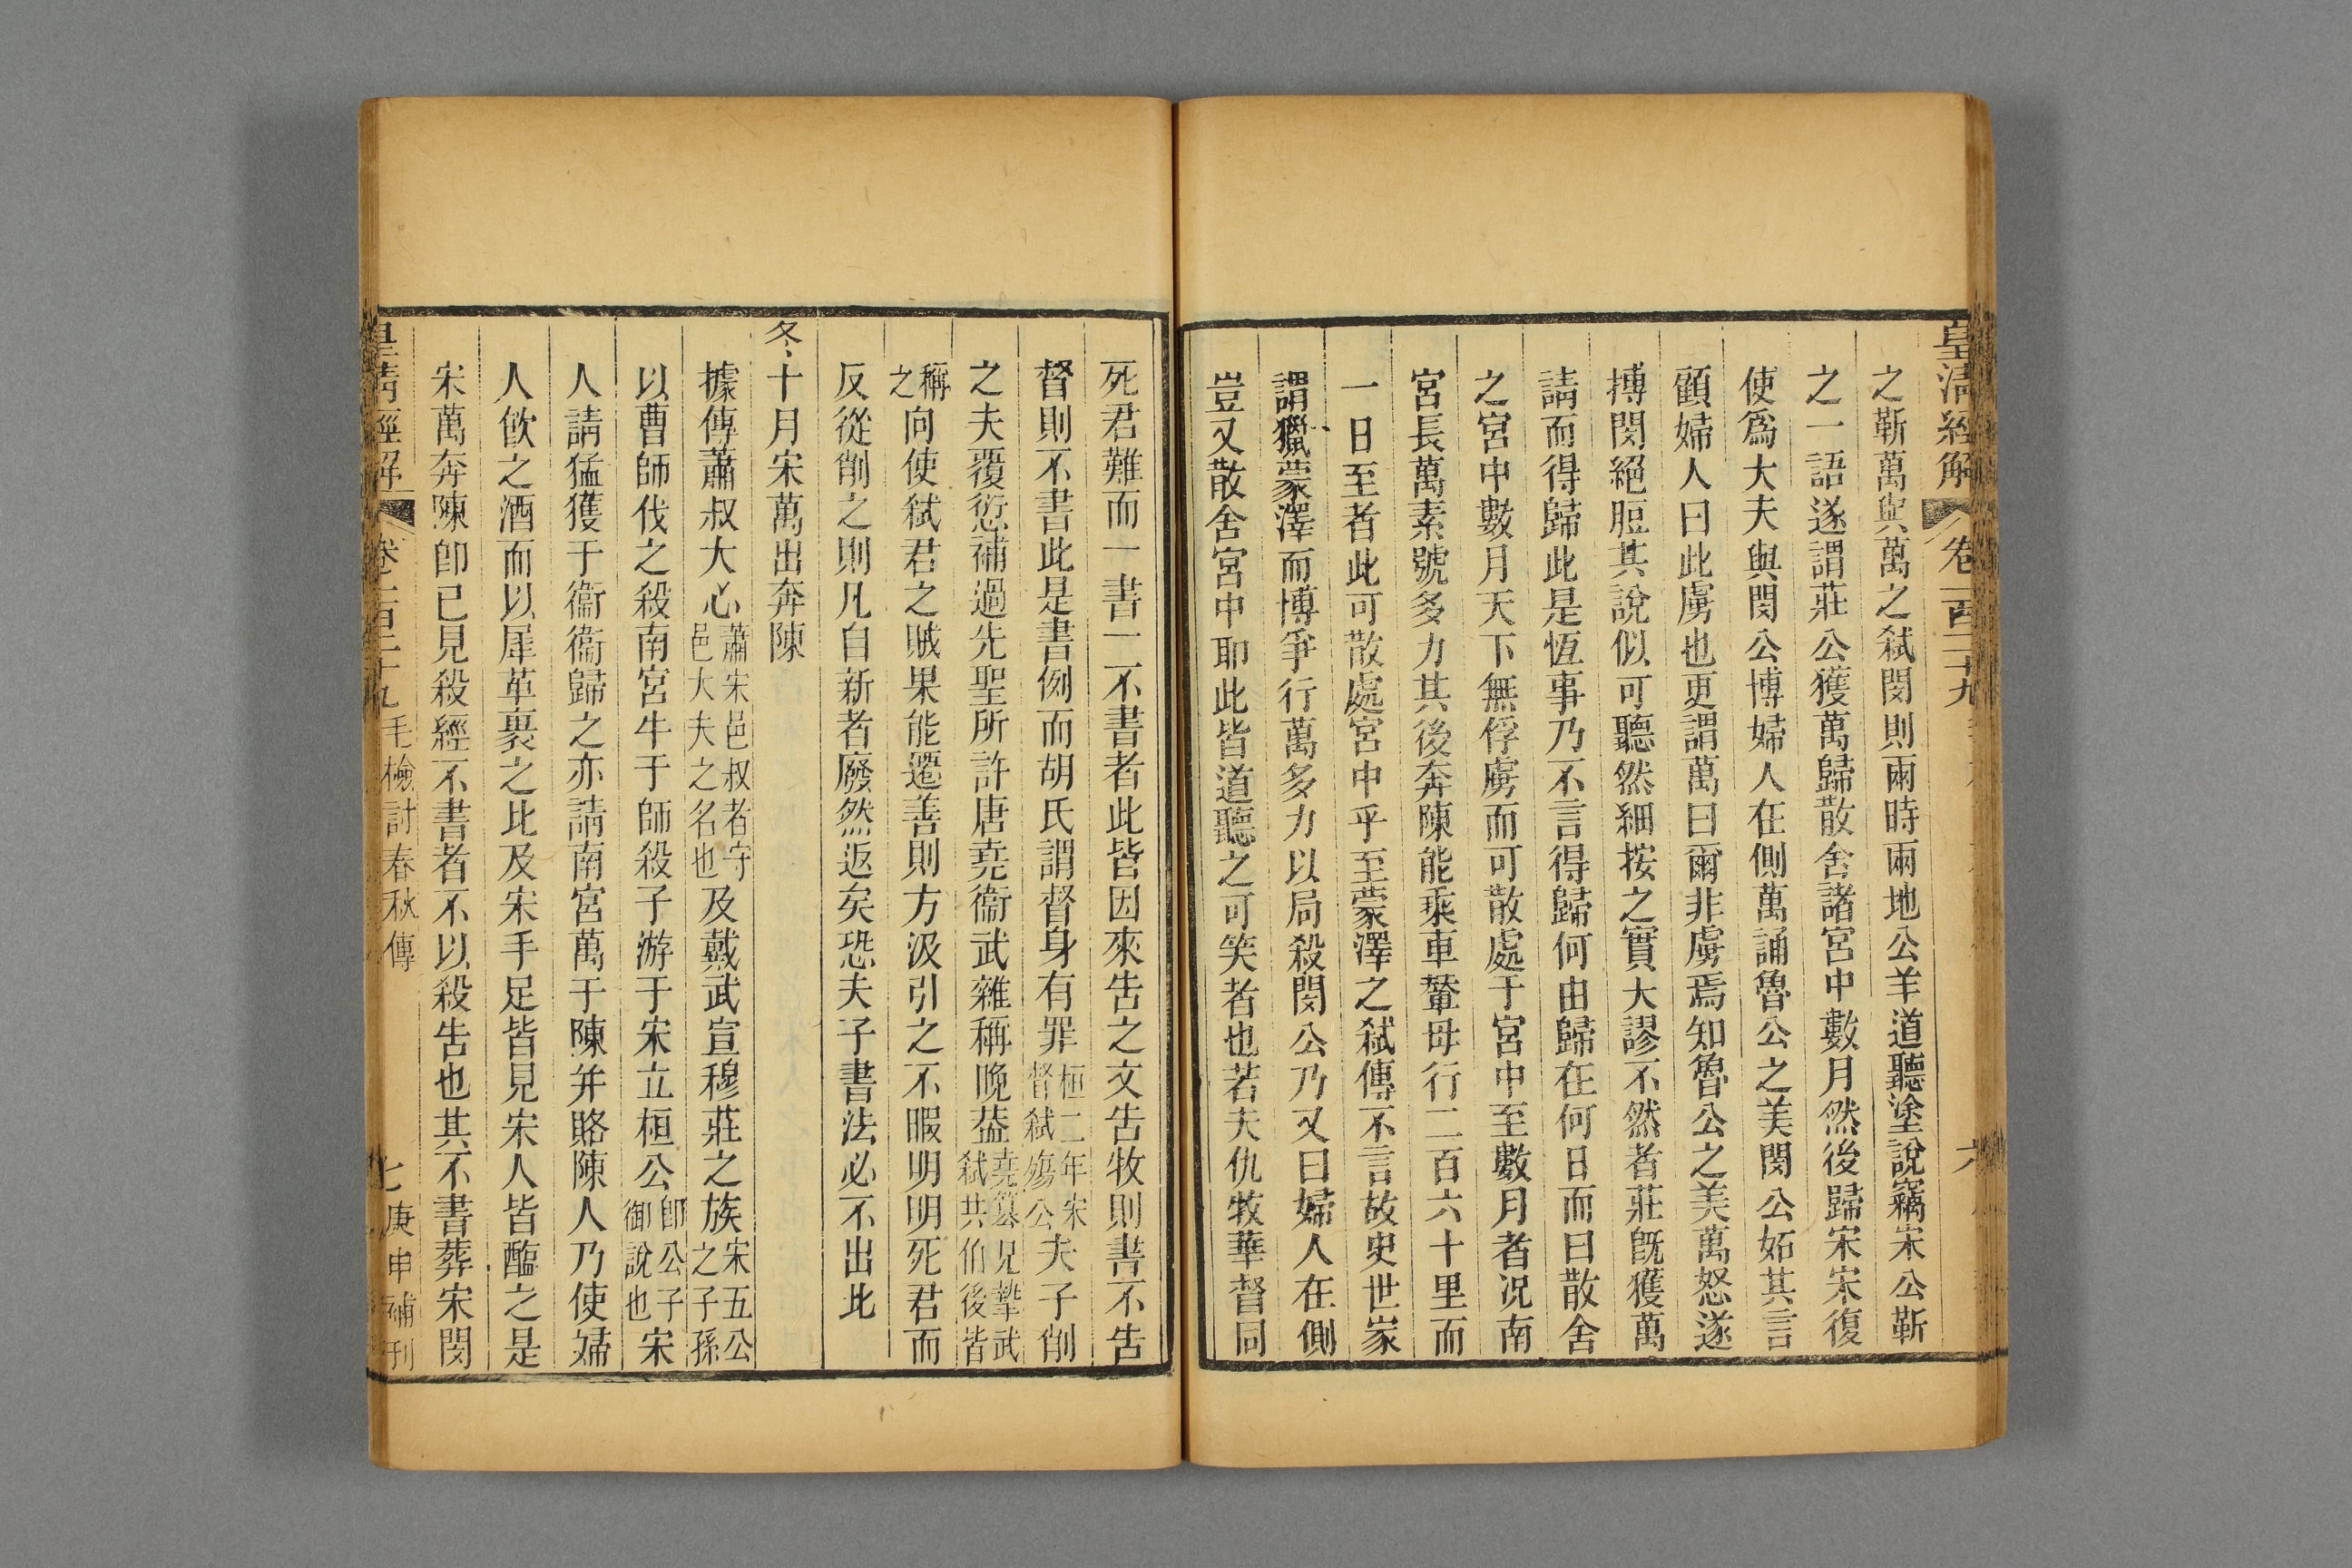 皇清經解 卷一百二十九 六
之靳萬與萬之弑閔則兩時兩地公羊道聽塗說竊宋公靳
之一語遂謂莊公獲萬歸散舍諸宮中數月然後歸宋宋復
使爲大夫與閔公博婦人在側萬誦魯公之美閔公妬其言
顧婦人曰此虜也更謂萬曰爾非虜焉知魯公之美萬怒遂
搏閔絕脰其說似可聽然細按之實大謬不然者莊旣獲萬
請而得歸此是恆事乃不言得歸何由歸在何日而曰散舍
之宮中數月天下無俘虜而可散處于宮中至數月者况南
宮長萬素號多力其後奔陳能乘車輦母行二百六十里而
一日至者此可散處宮中乎至蒙澤之弑傳不言故史世家
謂獵蒙澤而博爭行萬多力以局殺閔公乃又曰婦人在側
豈又散舍宮中耶此皆道聽之可笑者也若夫仇牧華督同
死君難而一書一不書者此皆因來告之文告牧則書不告
督則不書此是書例而胡氏謂督身有罪桓二年宋督弑殤公夫子削
之夫覆愆補過先聖所許唐堯衞武雜稱晚葢堯篡兄摯武弑共伯後皆
稱之向使弑君之賊果能遷善則方汲引之不暇明明死君而
反從削之則凡自新者廢然返矣恐夫子書法必不出此
冬十月宋萬出奔陳
據傳蕭叔大心蕭宋邑叔者守邑大夫之名也及戴武宣穆莊之族宋五公之子孫
以曹師伐之殺南宮牛于師殺子游于宋立桓公卽公子御說也宋
人請猛獲于衞衞歸之亦請南宮萬于陳并賂陳人乃使婦
人飮之酒而以犀革裹之比及宋手足皆見宋人皆醢之是
宋萬奔陳卽已見殺經不書者不以殺告也其不書葬宋閔
皇淸經解 卷一百二十九毛檢討春秋傳 七 庚申補刊